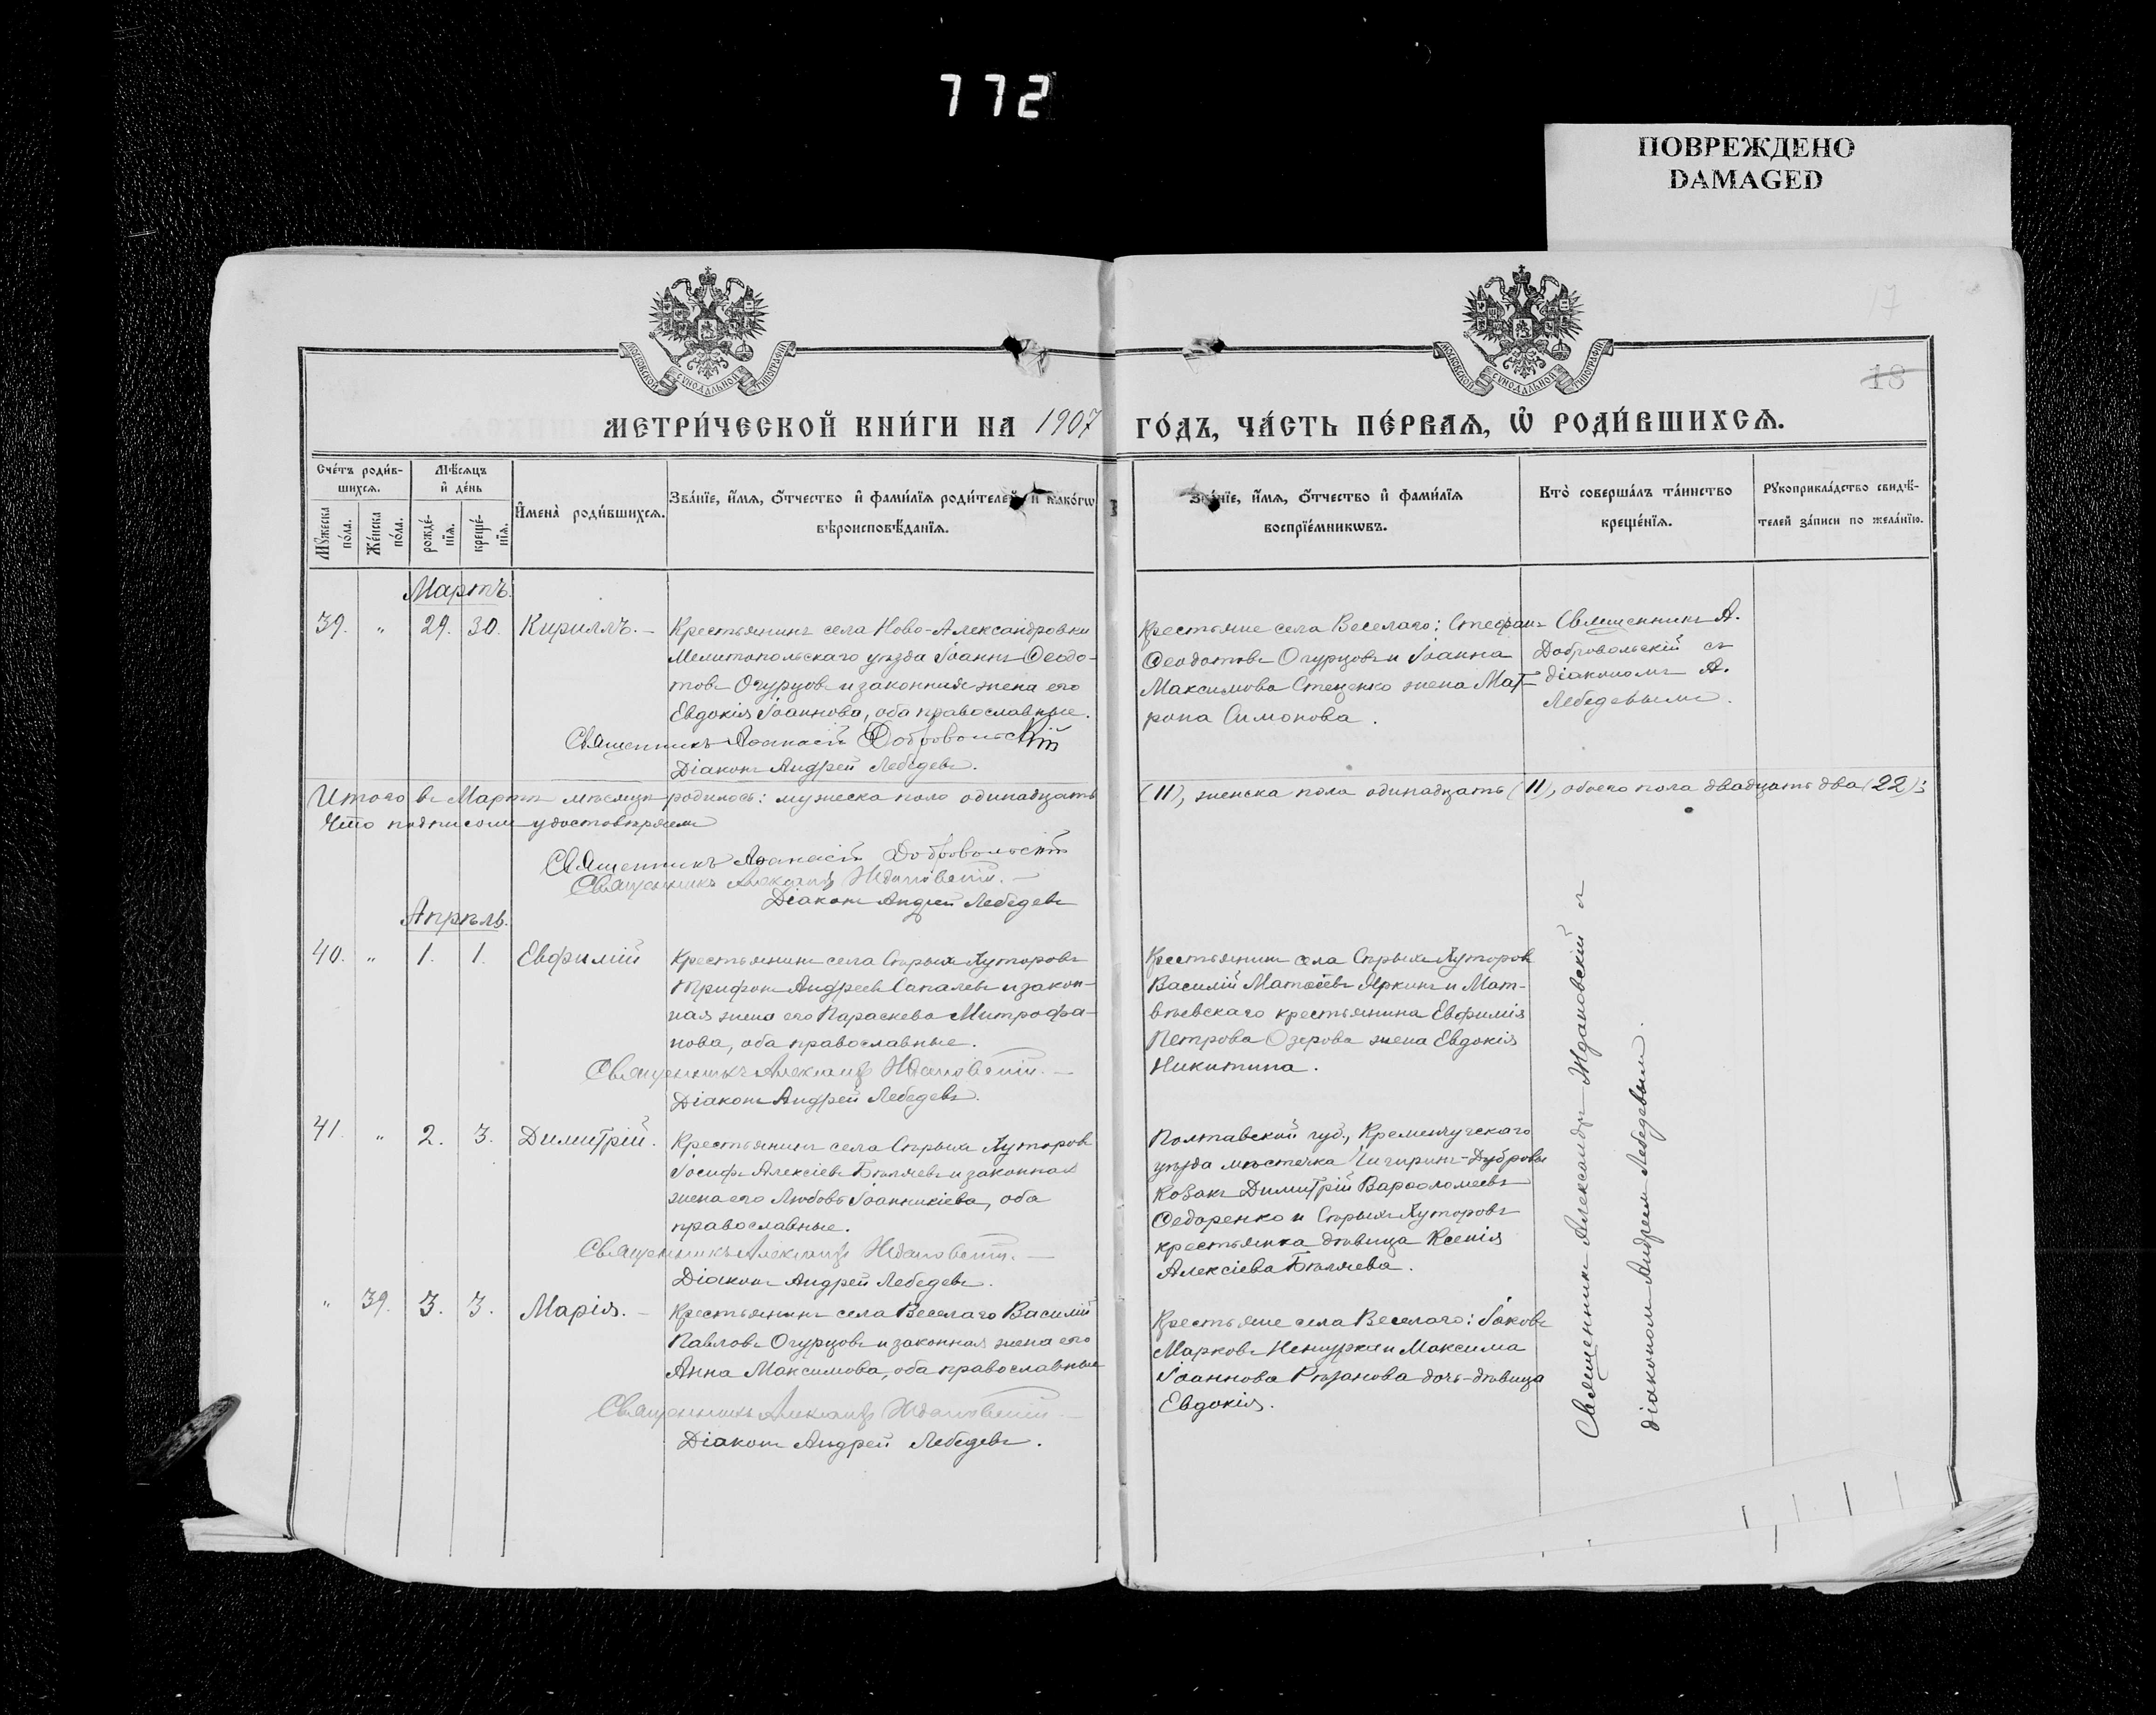 772
ПОВРЕЖДЕНО
DAMAGED
17
18
МОСКОВСКОЙ СѴНОДАЛЬНОЙ ТИПОГРАФІИ
МОСКОВСКОЙ СѴНОДАЛЬНОЙ ТИПОГРАФІИ
МЕТРИ́ЧЕСКОЙ КНИ́ГИ НА 1907 ГО́ДЪ, ЧА́СТЬ ПЕ́РВАѦ, Ѡ҆ РОДИ́ВШИХСѦ.
Сче́тъ роди́в-
шихсѧ.
Мꙋжеска
по́ла.
Же́нска
по́ла.
Мѣ́сѧцъ
и҆ де́нь
рожде́-
нїѧ.
креще́-
нїѧ.
И҆мена̀ роди́вшихсѧ.
Зва́нїе, и҆́мѧ, о҆́тчество и҆ фами́лїѧ роди́телей, и҆ како́гѡ
вѣроисповѣ́данїѧ.
Зва́нїе, и҆́мѧ, о҆́тчество и҆ фами́лїѧ
воспрїе́мникѡвъ.
Кто̀ соверша́лъ та́инство
креще́нїѧ.
Рꙋкоприкла́дство свидѣ́-
телей за́писи по жела́нїю.
Мартъ.
39. " 29. 30. Кириллъ. –
Крестьянинъ села Ново-Александровки
Мелитопольскаго уѣзда Іоаннъ Ѳеодо-
товъ Огурцовъ и законная жена его
Евдокія Іоаннова, оба православные.
Священникъ Аѳанасій Добровольскій
Діаконъ Андрей Лебедевъ.
Крестьяне села Веселаго: Стефанъ
Ѳеодотовъ Огурцовъ и Іоанна
Максимова Стеценко жена Мат-
рона Симонова.
Священникъ А.
Добровольскій съ
діакономъ А.
Лебедевымъ.
Итого въ Мартѣ мѣсяцѣ родилось: мужеска пола одинадцать (11), женска пола одинадцать (11), обоего пола двадцать два (22);
Что подписомъ удостовѣряемъ
Священникъ Аѳанасій Добровольскій
Священникъ Александръ Ждановскій. –
Діаконъ Андрей Лебедевъ
Апрѣль.
40. " 1. 1. Евфимій
Крестьянинъ села Сѣрыхъ Хуторовъ
Трифонъ Андреевъ Сапалевъ и закон-
ная жена его Параскева Митрофа-
нова, оба православные.
Священникъ Александръ Ждановскій. –
Діаконъ Андрей Лебедевъ.
Крестьянинъ села Сѣрыхъ Хуторовъ
Василій Матѳеевъ Яркинъ и Мат-
вѣевскаго крестьянина Евфимія
Петрова Озерова жена Евдокія
Никитина.
41. " 2. 3. Димитрій.
Крестьянинъ села Сѣрыхъ Хуторовъ
Іосифъ Алексіевъ Бѣляевъ и законная
жена его Любовь Іоанникіева, оба
православные.
Священникъ Александръ Ждановскій. –
Діаконъ Андрей Лебедевъ.
Полтавской губ., Кременчугскаго
уѣзда мѣстечка Чигиринъ-Дубровы
козакъ Димитрій Варѳоломеевъ
Ѳедоренко и Сѣрыхъ Хуторовъ
крестьянка дѣвица Ксенія
Алексіева Бѣляева.
" 39. 3. 3. Марія. –
Крестьянинъ села Веселаго Василій
Павловъ Огурцовъ и законная жена его
Анна Максимова, оба православные
Священникъ Александръ Ждановскій –
Діаконъ Андрей Лебедевъ.
Крестьяне села Веселаго: Іаковъ
Марковъ и Максима
Іоаннова Рязанова дочь-дѣвица
Евдокія.
Священникъ Александръ Ждановскій съ
діакономъ Андреемъ Лебедевымъ.